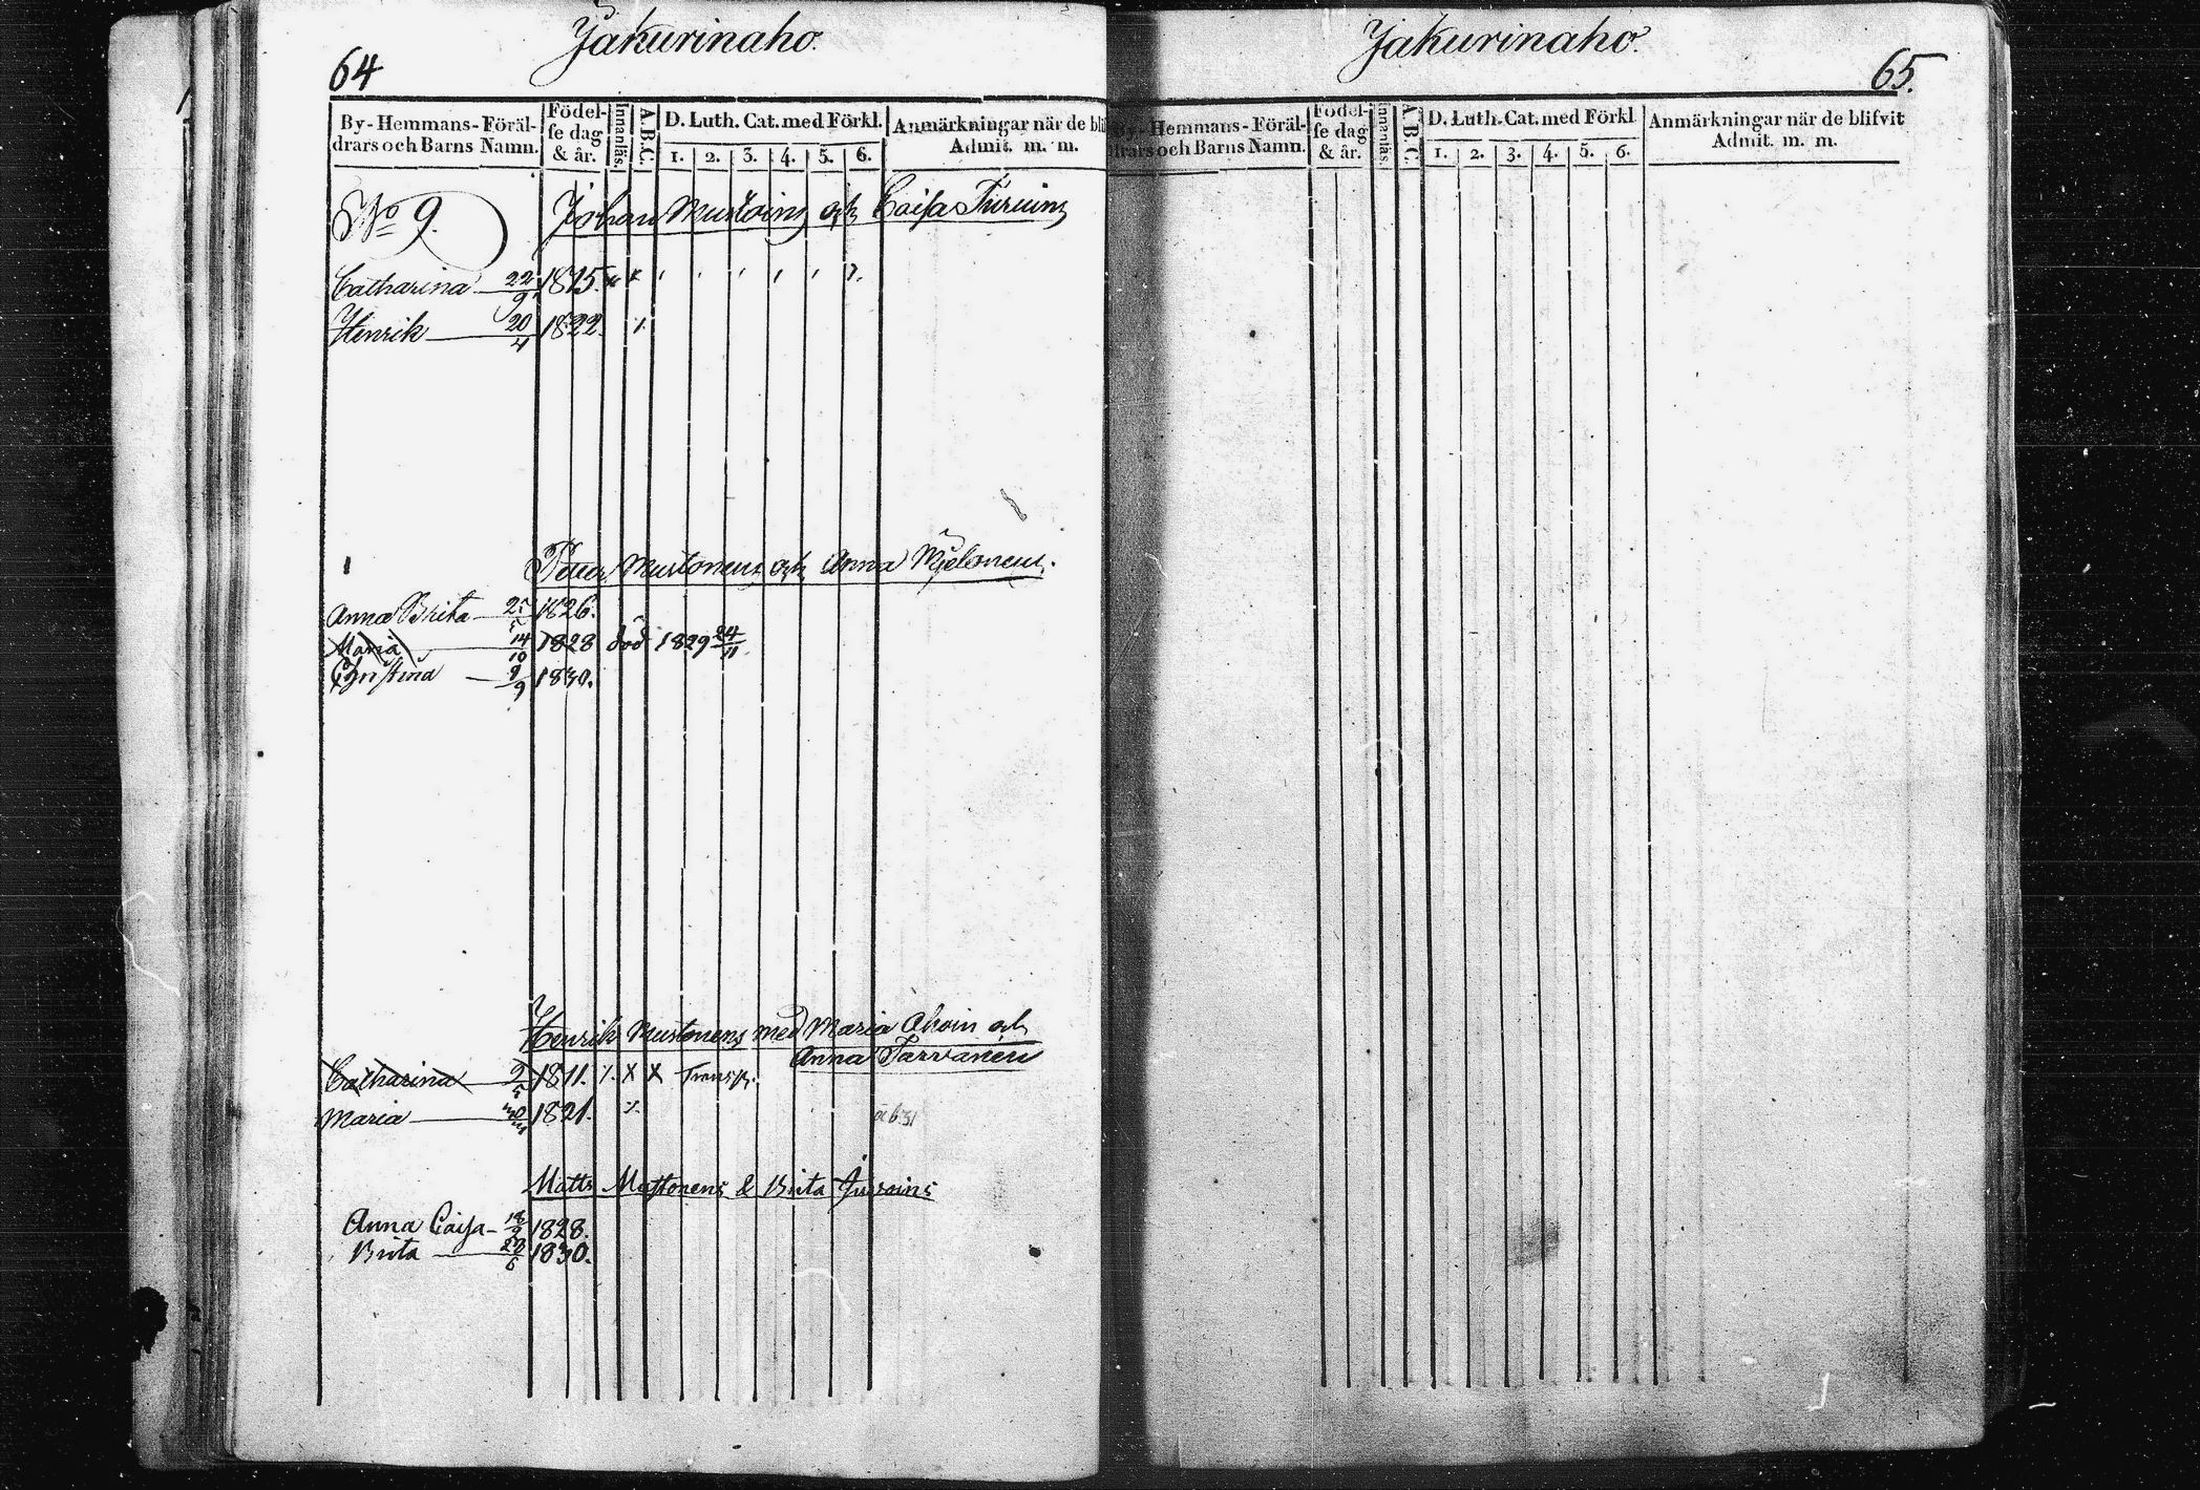 64
Jakurinaho.
By-Hemmans-Föräl-
drars och Barns Namn.
Födel-
se dag
& år.
Innanläs.
A.B.C.
D. Luth. Cat. med Förkl.
1. 2. 3. 4. 5. 6.
Anmärkningar när de bli
Admit. m. m.
No 9.
Johan och Caisa
Catharina 22/9 1815.
Henrik 20/4 1822.
Petter Mustonens och Anna
Anna Brita 25/5 1826.
Maria 14/10 1828 död 1829 24/11
Christina 9/9 1830.
Henrik Mustonens med Maria och
Anna Tarvanen
Catharina 2/5 1811. X X Transp.
Maria 1821.
Matts Mustonens & Brita
Anna Caisa 1828.
Brita 1830.
Jakurinaho.
65.
By-Hemmans-Föräl-
drars och Barns Namn.
Födel-
se dag
& år.
Innanläs.
A.B.C.
D. Luth. Cat. med Förkl
1. 2. 3. 4. 5. 6.
Anmärkningar när de blifvit
Admit. m. m.